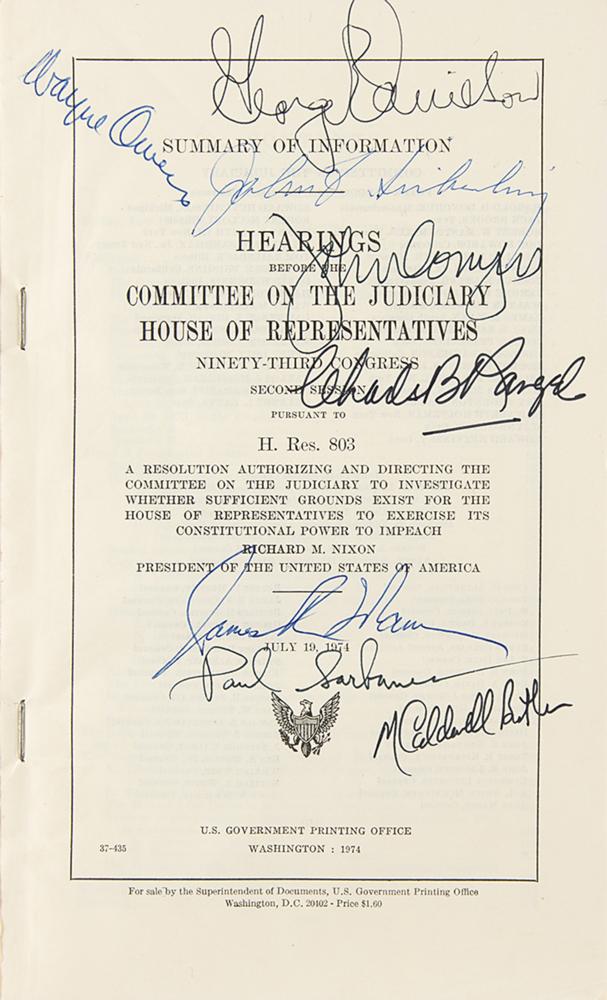 George Danielson
Wayne Owens
SUMMARY OF INFORMATION
John F. Seiberling
HEARINGS
BEFORE THE
John Conyers
COMMITTEE ON THE JUDICIARY
HOUSE OF REPRESENTATIVES
NINETY-THIRD CONGRESS
Charles B Rangel
SECOND SESSION
PURSUANT TO
H. Res. 803
A RESOLUTION AUTHORIZING AND DIRECTING THE
COMMITTEE ON THE JUDICIARY TO INVESTIGATE
WHETHER SUFFICIENT GROUNDS EXIST FOR THE
HOUSE OF REPRESENTATIVES TO EXERCISE ITS
CONSTITUTIONAL POWER TO IMPEACH
RICHARD M. NIXON
PRESIDENT OF THE UNITED STATES OF AMERICA
James R Mann
JULY 19, 1974
Paul Sarbanes
M Caldwell Butler
U.S. GOVERNMENT PRINTING OFFICE
37-435 WASHINGTON : 1974
For sale by the Superintendent of Documents, U.S. Government Printing Office
Washington, D.C. 20402 - Price $1.60